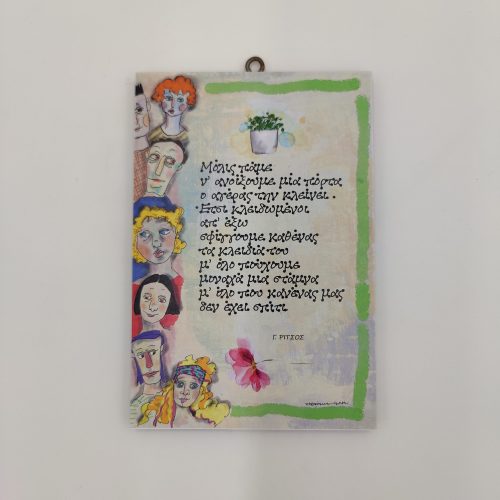 Μόλις πάμε
ν' ανοίξουμε μία πόρτα
ο αγέρας την κλείνει.
Έτσι κλειδωμένοι
απ' έξω
σφίγγουμε καθένας
τα κλειδιά του
μ' όλο πούχουμε
μοναχά μια στάμνα
μ' όλο που κανένας μας
δεν έχει σπίτι
Γ. ΡΙΤΣΟΣ